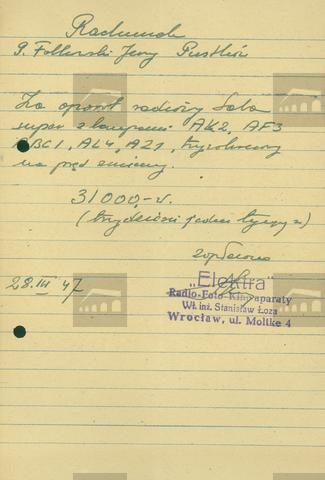 Rachunek
P. Folterski Jerzy Pustków
Za aparat radiowy Saba
super z lampami AK2, AF3
ABC1, AL4, AZ1, trzyobwodowy
na prąd zmienny.
31000,- zł.
(trzydzieści jeden tysięcy zł)
zapłacono
28. III 47
„Elektra”
Radio-Foto-Kinoaparaty
Wł. inż. Stanisław Łoza
Wrocław, ul. Moltke 4